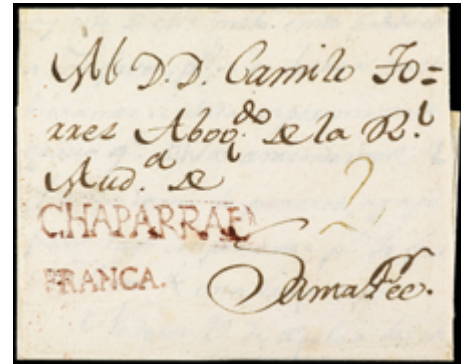 Al D.D. Camilo To=
rres Abog.do de la R.l
Aud.a de
CHAPARRAL
FRANCA.
Santa Fee.